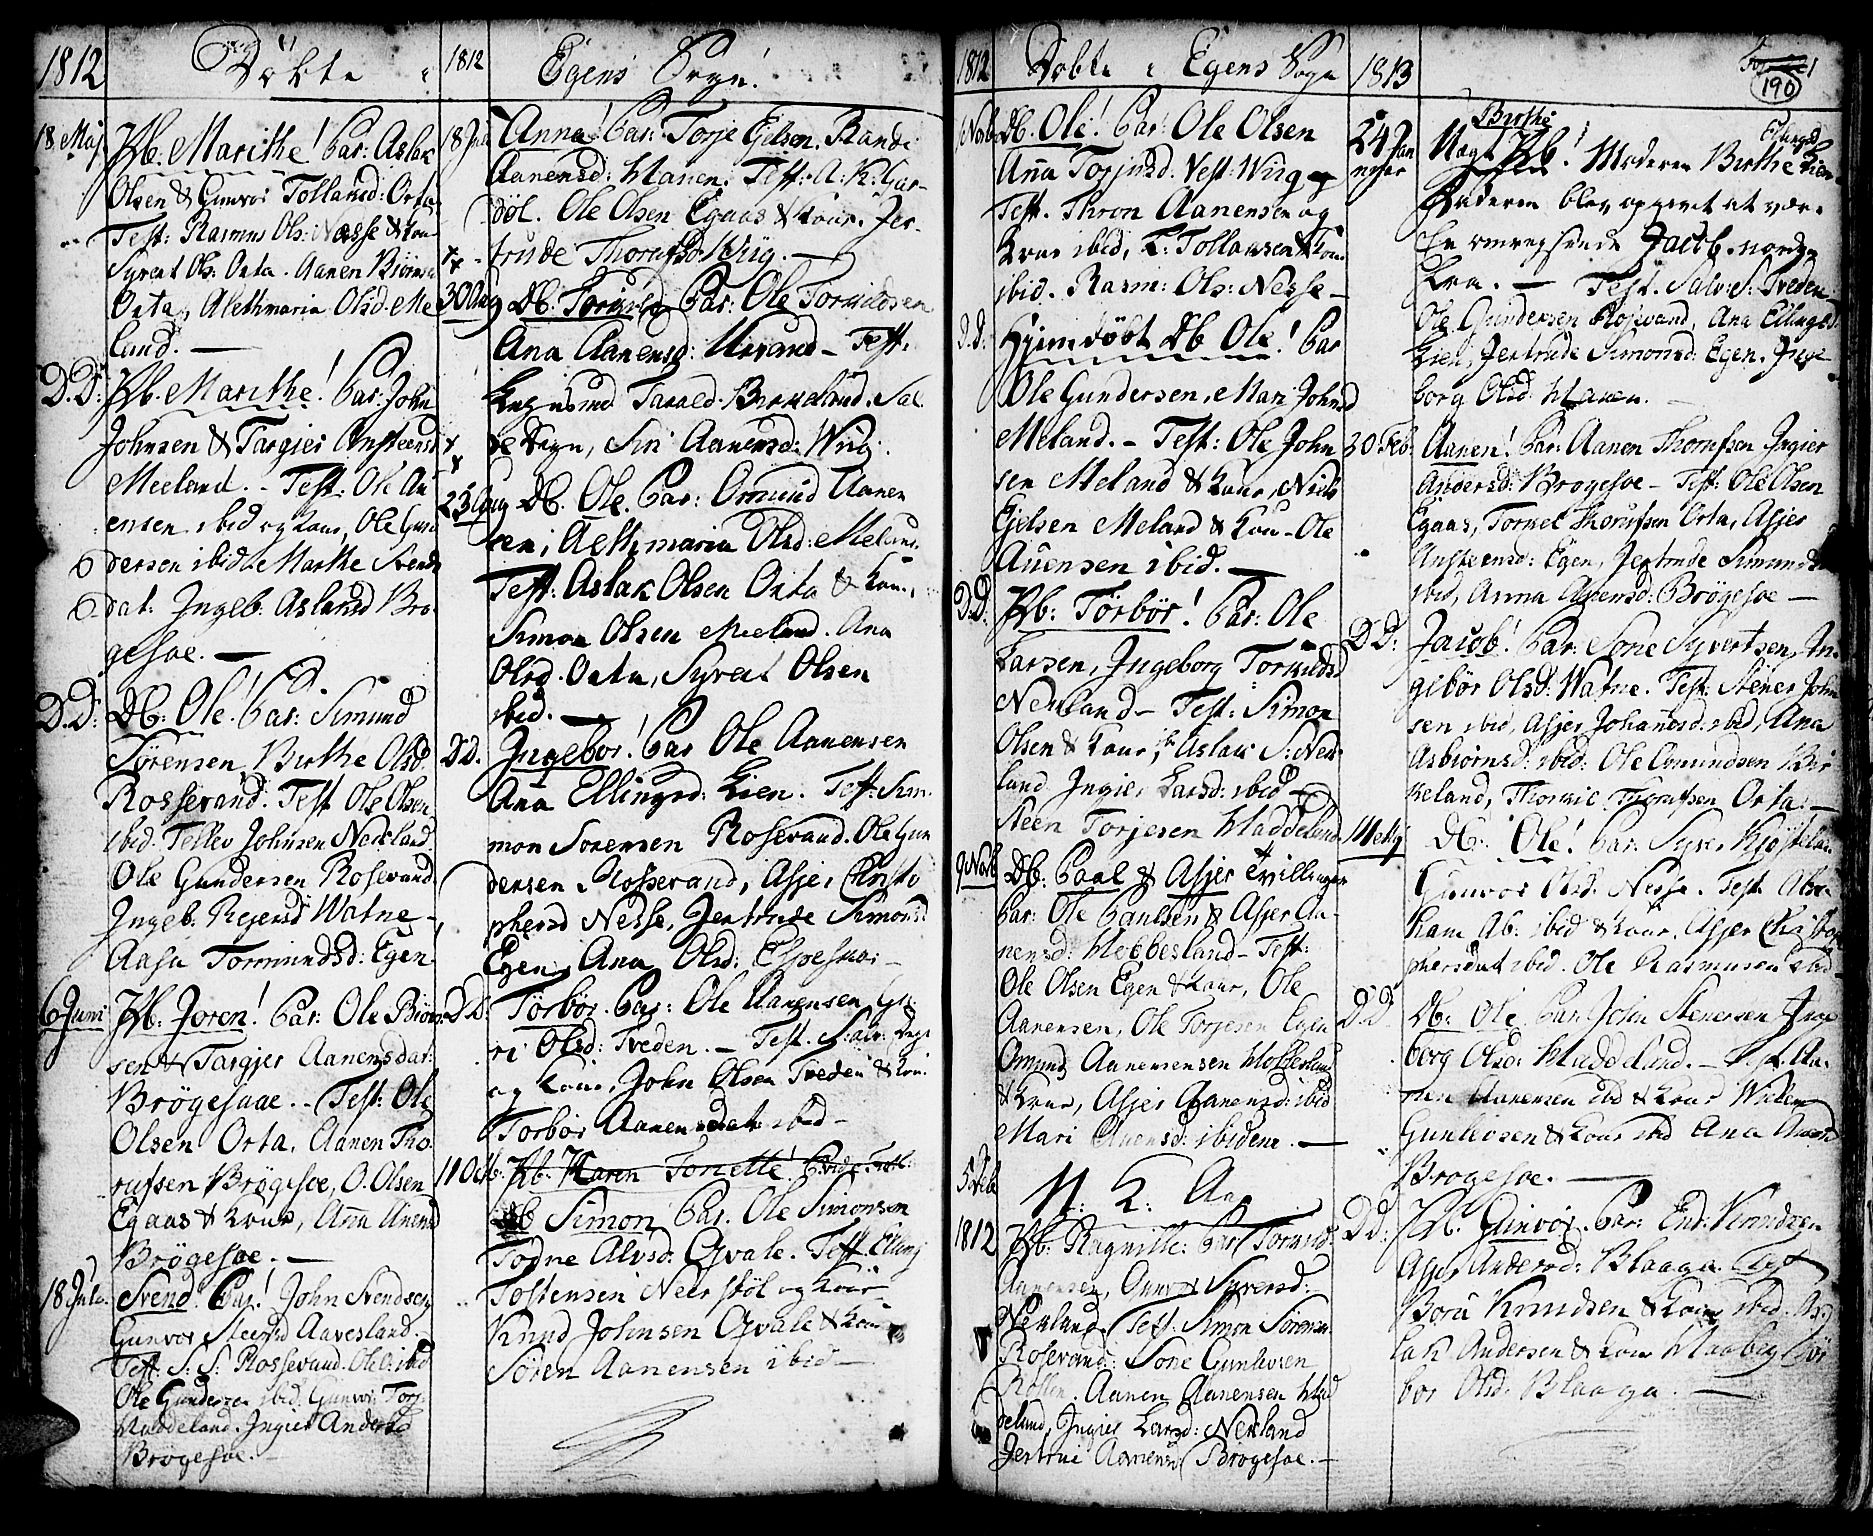 1812 Döbte i
18 Maj. Pb. Marithe! Par: Aslak
Olsen & Gunvor Tollansd: Orta
Test: Rasmus Ols: Nesse & Kon
Syvert Ols: Orta. Aanen Biörns
Orta, Alethmaria Olsd. Me
land. —
D.D: Pb. Marithe! Par: John
Johnsen & Targjer Ansteensd
Meeland. - Test: Ole An
ensen ibid og Kone, Ole Gun
dersen ibid. Marthe Svends
dat: Ingeb: Aslansd Brö
gesoe. —
D.D: Db: Ole! Par: Simund
Sørensen, Birthe Olsd.
Rossevand. Test Ole Olsen
ibid. Tellev Johnsen Nerland
Ole Gundersen Rosevand
Ingeb: Rejersd Watne -
Aasa Tormundsd: Egen
6 Juni Pb. Joren! Par: Ole Biörn
sen & Targjer Aanensdat:
Brøgesaae. - Test: Ole
Olsen Orta, Aanen Tho
rufsen Brøgesoe, O. Olsen
Egaas & Kone, Aña Anensd
Brøgesoe. —
18 Jula. Svend! Par! John Svendsen
Gunvor Steersd Aavesland.
Test: S: S: Rossevand. Ole O: ibid
Ole Gundersen ibid. Gunvor Torj
Haddeland. Ingier Andersd
Brøgesoe. -
1812 Egens Sogn!
18 Jula Anna! Par: Torje Ejelsen. Rande
Aanensd: Hanen. Test: A: K: Gar-
döl. Ole Olsen Egaas & Kone. Jer-
trude Thorufsd: Wiig. —
30 Aug Db: Torkild Par: Ole Torkildsen
Ana Aanensd: Urvand - Test:
Tarald Birkeland. Sal
Siri Aanensd: Wiig.
23 Aug Db. Ole. Par: Omund Aanen
sen, Alethmaria Olsd: Meland
Test: Aslak Olsen Orta & Kone,
Simon Olsen Meeland. Ana
Olsd. Orta, Syvert Olsen
ibid. —
D.D. Ingebor! Par Ole Aanensen
Aña Ellingsd: Lien. Test: Sim-
mon Sørensen Rosevand. Ole Gun
dersen Rosserand, Asjer Christo
phersd Nesse, Jertrude Simonsd
Egen, Ana Olsd: Espesnæs -
D.D: Törbör. Par: Ole Aanensen, Gu
ri Olsd: Treden. - Test. Salv:
og Kone, John Olsen Treden & Kon
Torbör Aanensdat ibid -
11 Octb: Pb. Karen Tonette!
Db Simon Par. Ole Simonsen
Todne Alvsd: Qvale. Test Elling
Tostensen Neerstöl og Kone
Knud Johnsen Qvale & Kone
Søren Aanensen ibid —
1812 Döbte i Egens Sogn
Novb Db. Ole! Par: Ole Olsen
Aña Torjusd. Vest: Wiig
Test. Thron Aanensen og
Kone ibid, T: Tollansen & Kone
ibid. Rasm: Ols: Nesse -
D.D: Hjemdöbt Db Ole! Par
Ole Gundersen, Mari Johnsd
Meland. - Test: Ole John
sen Meland & Kone, Niels
Ejelsen Meland & Kone - Ole
Auensen ibid. —
D.D: Pb: Törbör! Par: Ole
Larsen, Ingeborg Torkilds
Nerland - Test: Simon
Olsen & Kone, Aslak S: Ner
land Ingier Larsd: ibid —
Steen Torjesen Haddeland
9 Novb Db: Paal & Asjer tvillinger
Par: Ole Paulsen & Asjer Aa-
nensd: Hebbesland - Test:
Ole Olsen Egen & Kone, Ole
Aanensen, Ole Torjesen Egen
Omund Aanensen Hebbesland
& Kone, Asjer Aanensd: ibid
Mari Auensd: ibidem. —
N: K: Aa
1812 Pb: Ragnille: Par Tormod
Aanensen, Gunvor Syversd:
Nerland. Test: Simon Sørensen
Rosevand: Sone Gunlavsen
Röslen. Aanen Aanensen Had
deland, Ingier Larsd: Nerland
Jertrue Aanensd Brøgesoe. -
1813
190
24 Januar Birthe
Uægt Pb! Moderen Birthe
Faderen blev opgivet at være
Jacob
Test. Salv: S: Treden
Ole Gundersen Rosevand, Ana Ellingsd:
Lien, Jertrude Simonsd: Egen, Inge
borg Olsd: Hanen.
30 Feb. Aanen! Par: Aanen Thorufsen Ingier
Andersd: Brøgesoe - Test: Ole Olsen
Egaas, Torkel Thorufsen Orta, Asjer
Ansteensd: Egen, Jertrude Simunsd
ibid, Anna Anensd: Brögesoe —
D.D: Jacob! Par: Sone Syvertsen, In
gebör Olsd: Watne. Test: Stener John
sen ibid, Asjer Johansd: ibid, Ana
Asbiörnsd: ibid: Ole Omundsen Bir
keland, Thorkil Thorufsen Orta. —
14 Db: Ole! Par: Syv: Kjøsteland
Gunvor Olsd. Nesse. Test Abra
ham Ab: ibid & Kone, Asjer Christo
phersdat ibid. Ole Rasmusen ibid
D.D. Db: Ole Par John Stenersen Inge
borg Olsd: Haddeland. - Test. Aa-
nen Aanensen ibd & Kone Willem
Gunlevsen & Kone ibid Ana Anensd
Brogesoe. —
D.D: Pb. Ginvör. Par: End: Knudsen
Asjer Andersd: Blaaga Test
Borü Knudsen & Kone ibid. As
lak Andersen & Kone Haaberg
bor Olsd. Blaaga. —